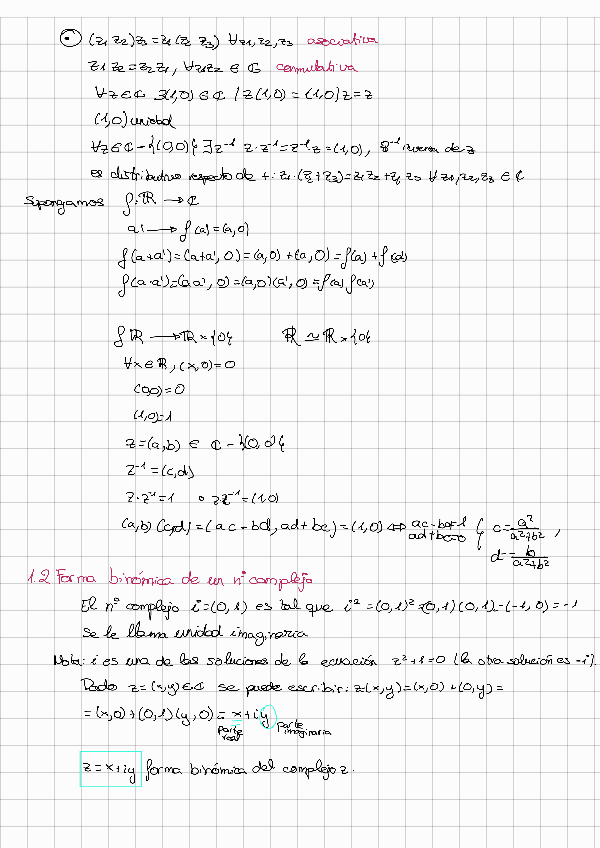 (z₁ z₂)z₃ = z₁(z₂ z₃) ∀z₁,z₂,z₃ asociativa
z₁z₂ = z₂z₁, ∀z₁z₂ ∈ ℂ conmutativa
∀z∈ℂ ∃(1,0)∈ℂ / z(1,0) = (1,0)z = z
(1,0) unidad
∀z∈ℂ-{(0,0)} ∃z⁻¹ z·z⁻¹=z⁻¹z=(1,0), z⁻¹ inverso de z
es distributivo respecto de +: z₁·(z₂+z₃)=z₁z₂+z₁z₃ ∀z₁,z₂,z₃ ∈ ℂ
Supongamos f:ℝ → ℂ
a → f(a)=(a,0)
f(a+a')=(a+a',0)=(a,0)+(a',0)=f(a)+f(a')
f(a·a')=(a·a',0)=(a,0)(a',0)=f(a)f(a')
f ℝ → ℝ×{0} ℝ ≃ ℝ×{0}
∀x∈ℝ, (x,0)=0
(0,0)=0
(1,0)=1
z=(a,b) ∈ ℂ-{(0,0)}
z⁻¹=(c,d)
z·z⁻¹=1 o zz⁻¹=(1,0)
(a,b)(c,d)=(ac-bd, ad+bc)=(1,0) ⇔ ac-bd=1 ad+bc=0 { c=a²/(a²+b²),
d=b/(a²+b²)
1.2 Forma binómica de un nº complejo
El nº complejo i=(0,1) es tal que i²=(0,1)²=(0,1)(0,1)=(-1,0)=-1
Se le llama unidad imaginaria
Nota: i es una de las soluciones de la ecuación z²+1=0 (la otra solución es -i).
Dado z=(x,y)∈ℂ se puede escribir: z(x,y)=(x,0)+(0,y)=
=(x,0)+(0,1)(y,0)=x+iy
parte real parte imaginaria
z=x+iy forma binómica del complejo z.